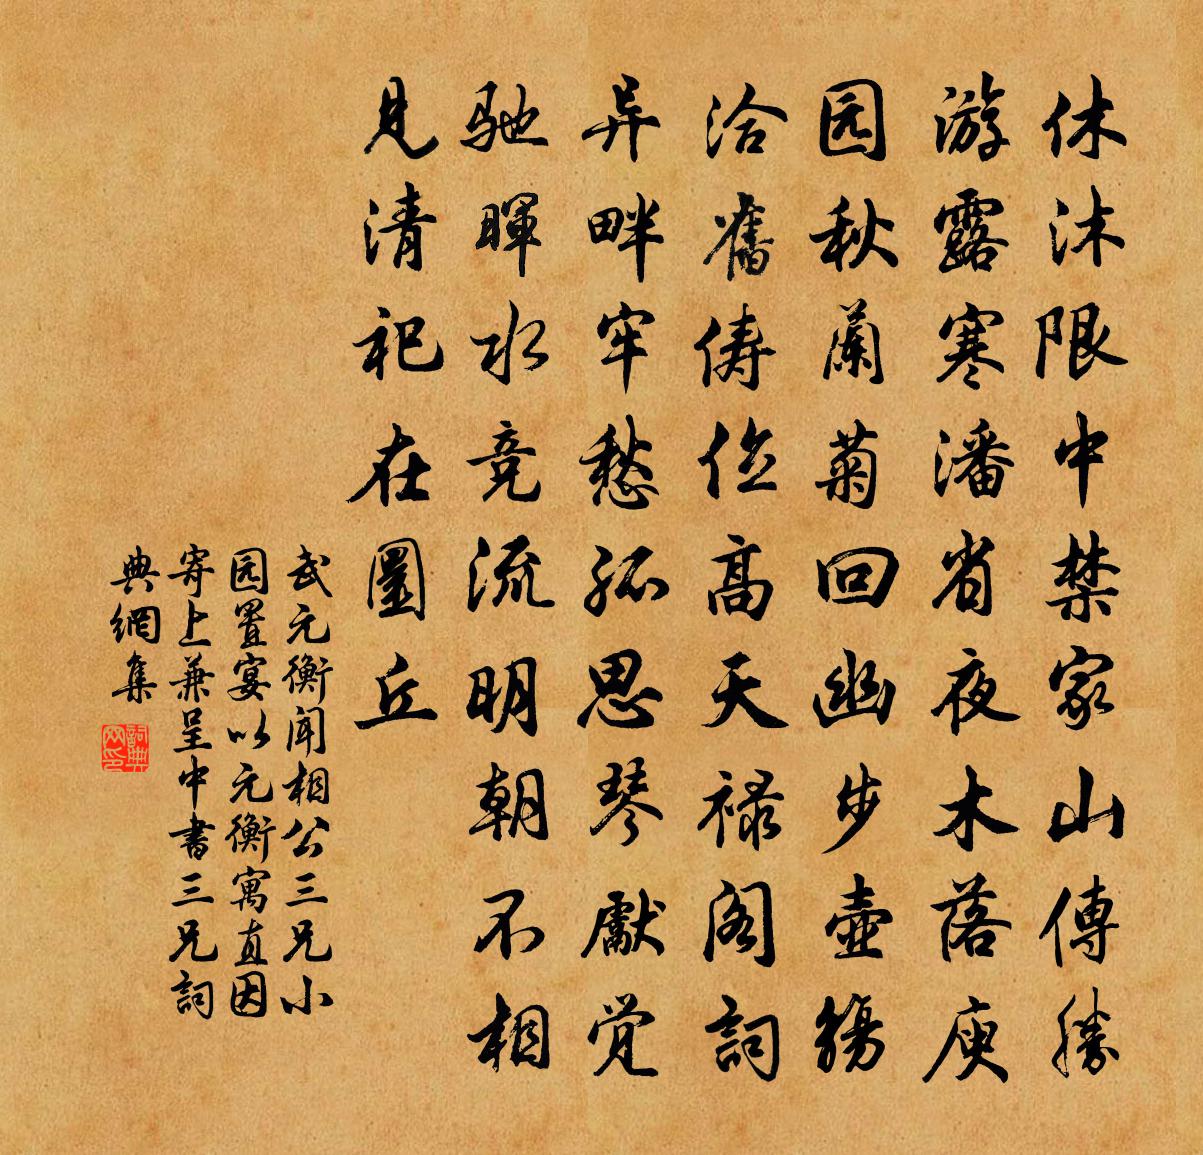 休沐限中禁家山傳勝
游露寒潘省夜木落庾
园秋蘭菊回幽步壺觴
洽舊儔位高天禄阁詞
异畔牢愁孤思琴獻觉
驰暉水竞流明朝不相
見清祀在圜丘
武元衡闻相公三兄小
园置宴以元衡寓直因
寄上兼呈中書三兄詞
典網集
詞典网印